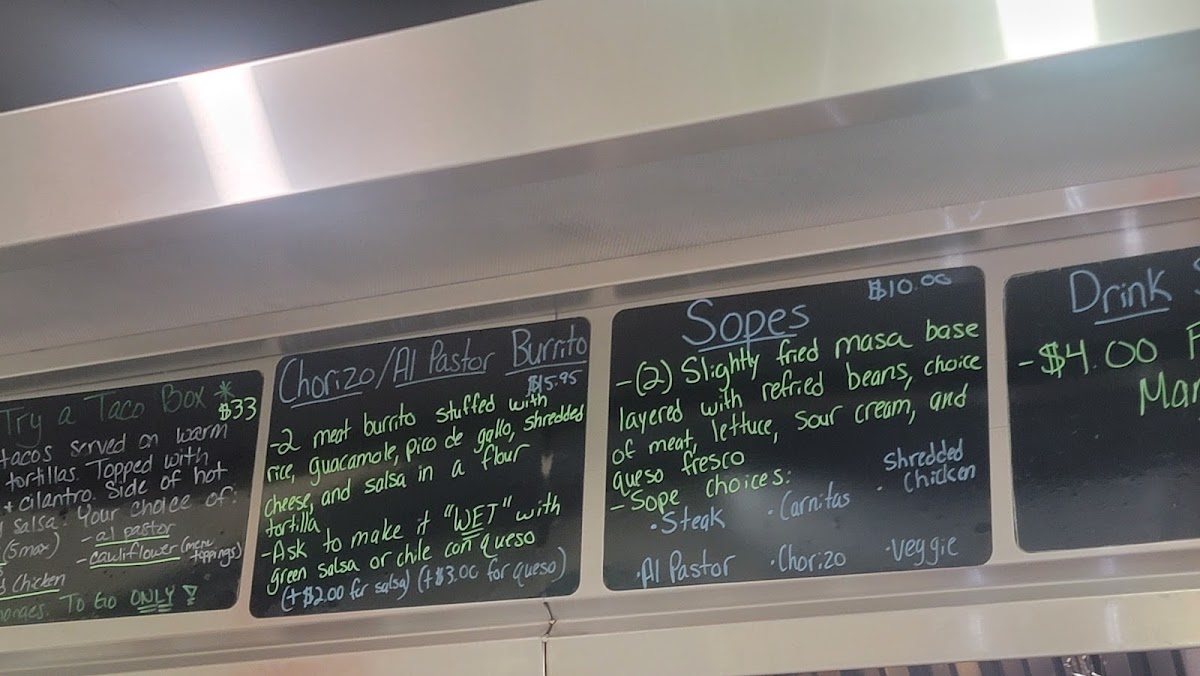 Try a Taco Box *
$33
tacos served on warm
tortillas. Topped with
+ cilantro. Side of hot
salsa. Your choice of:
(5 max) - al pastor
- cauliflower (menu toppings)
Chicken
To Go ONLY
Chorizo/Al Pastor Burrito
$15.95
-2 meat burrito stuffed with
rice, guacamole, pico de gallo, shredded
cheese, and salsa in a flour
tortilla
-Ask to make it "WET" with
green salsa or chile con queso
(+$2.00 for salsa) (+$3.00 for queso)
Sopes
$10.00
-(2) Slighty fried masa base
layered with refried beans, choice
of meat, lettuce, sour cream, and
queso fresco
-Sope choices:
· Steak · Carnitas · Shredded Chicken
· Al Pastor · Chorizo · Veggie
Drink
-$4.00